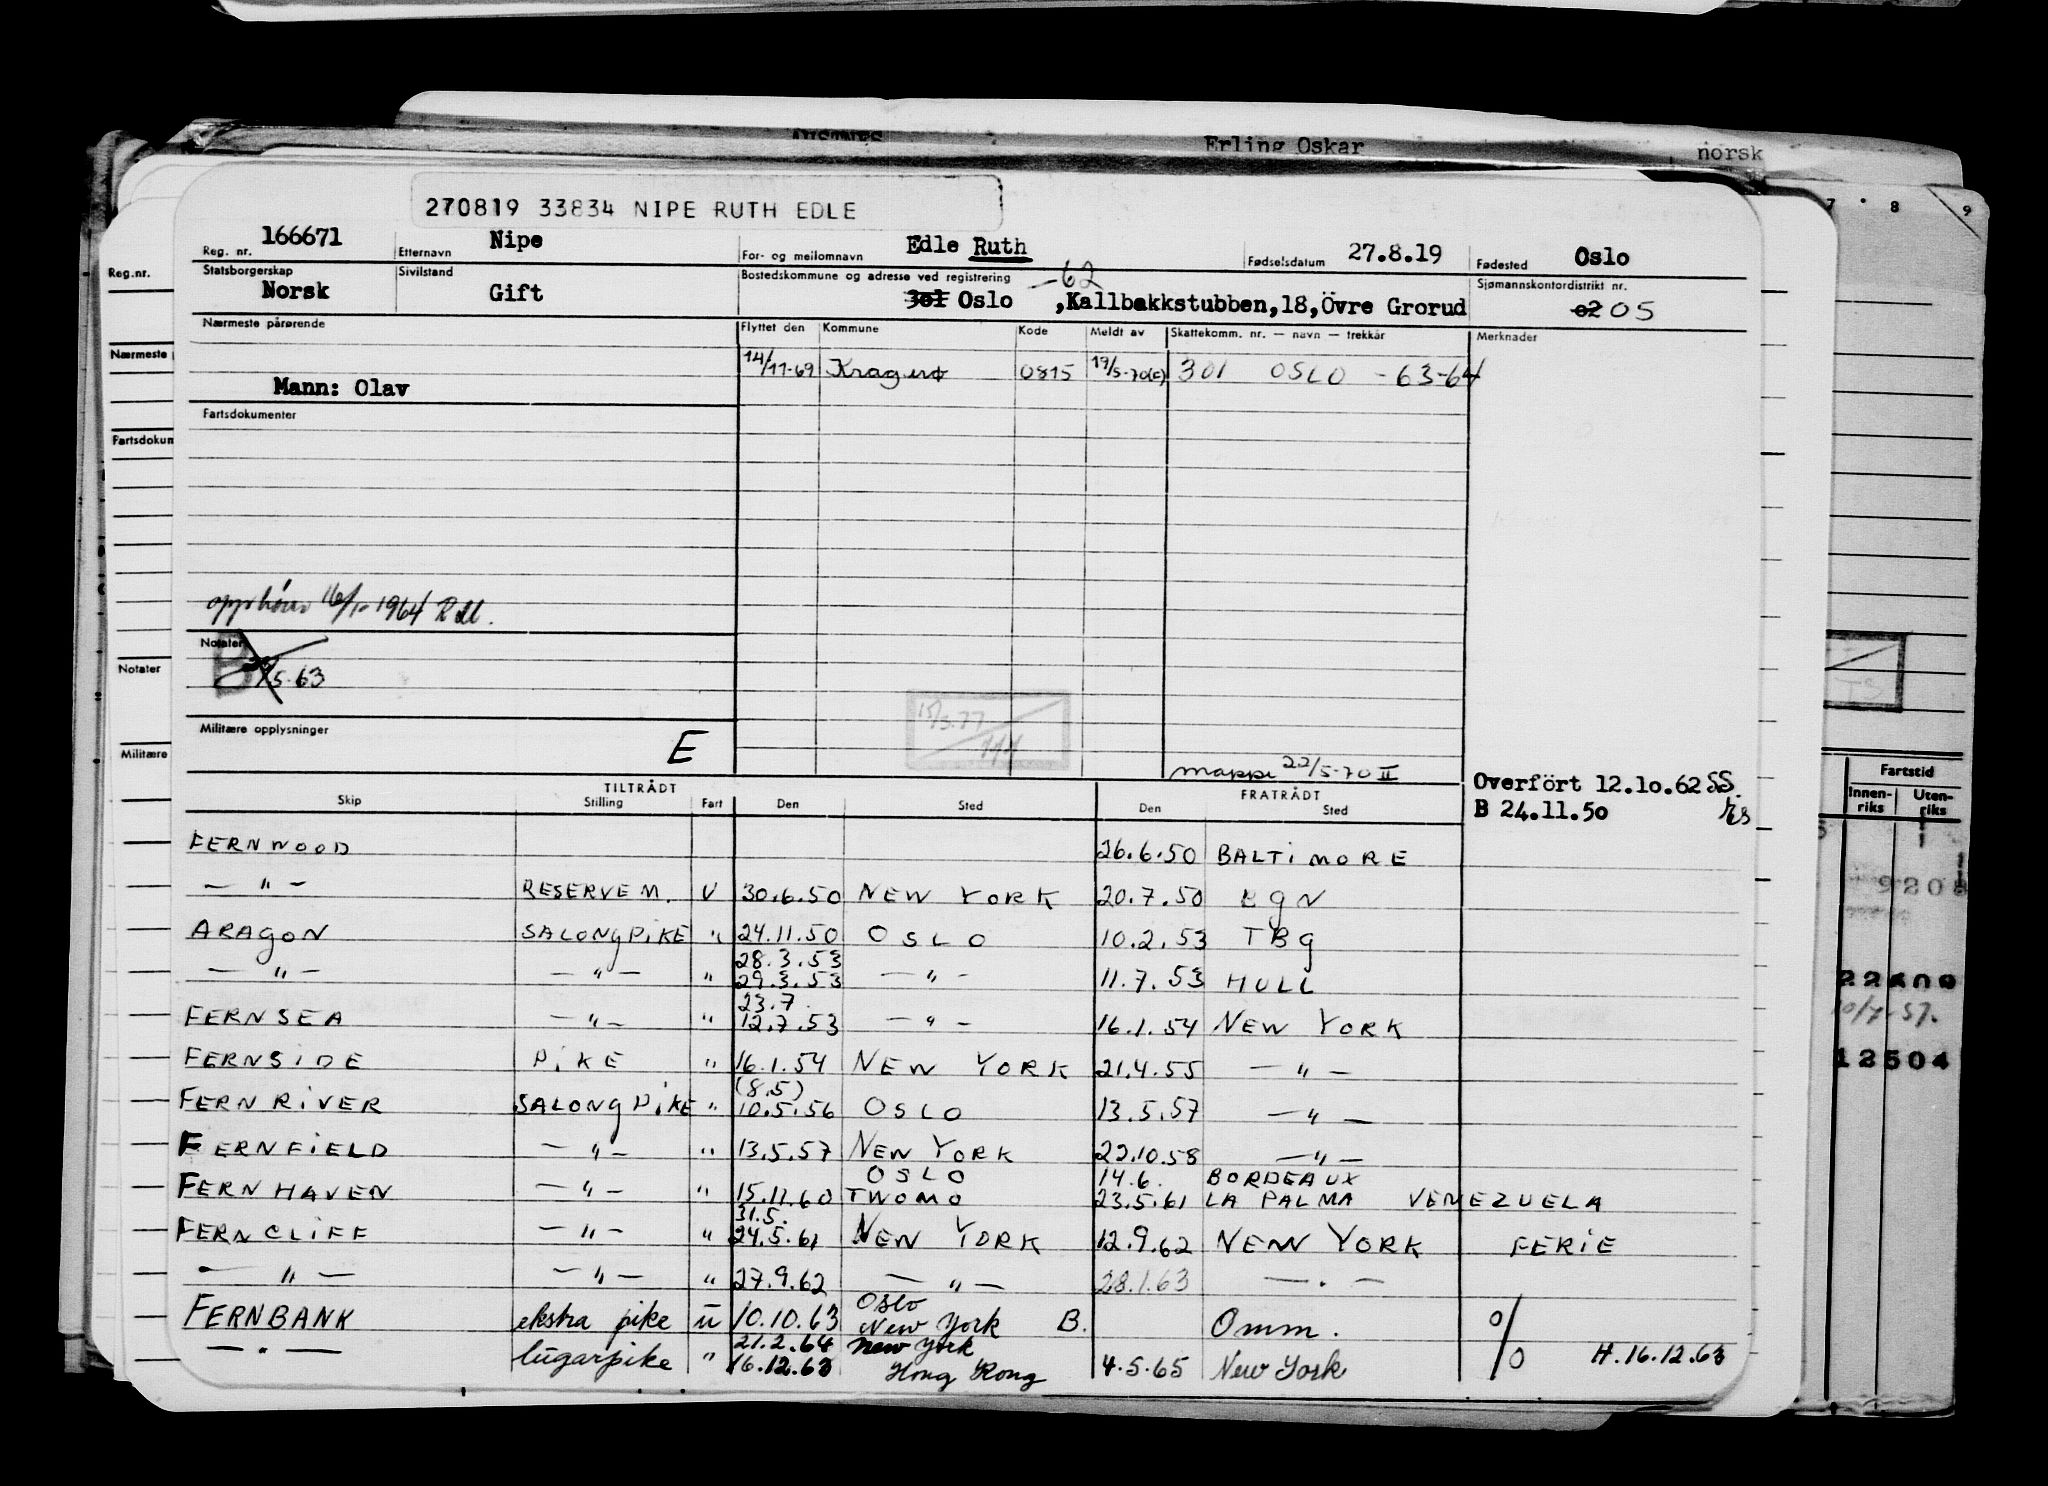 AUSTNES
Erling Oskar
norsk
7 8 9
270819 33834 NIPE RUTH EDLE
Reg. nr. 166671 Etternavn Nipe For- og mellomnavn Edle Ruth Fødselsdatum 27.8.19 Fødested Oslo
Reg.nr.
Statsborgerskap Sivilstand Bostedskommune og adresse ved registrering -62 Sjømannskontordistrikt nr.
Norsk Gift 301 Oslo ,Kallbakkstubben,18,Övre Grorud 02 05
Nærmeste pårørende Flyttet den Kommune Kode Meldt av Skattekomm. nr. — navn — trekkår Merknader
Nærmeste
14/11-69 Kragerø 0815 19/5-70(c) 301 OSLO - 63-64
Mann: Olav
Fartsdokumenter
Fartsdokum
16/10 1964
Notater
B 5.63
Notater
15/3.77
Militære opplysninger E
Militære
mappe 22/5-70 II
Overfört 12.10.62 SS.
B 24.11.50
TILTRÅDT FRATRÅDT
Skip Stilling Fart Den Sted Den Sted
Fartstid
Innen-riks Uten-riks
FERNWOOD 26.6.50 BALTIMORE
— " — RESERVEM. V 30.6.50 NEW YORK 20.7.50 BGN
9208
ARAGON SALONGPIKE " 24.11.50 OSLO 10.2.53 TBG
28.3.53
— " — — " — " 29.3.53 — " — 11.7.53 HULL
22600
23.7.
FERNSEA — " — " 12.7.53 — " — 16.1.54 NEW YORK
10/7-57.
FERNSIDE PIKE " 16.1.54 NEW YORK 21.4.55 — " —
12504
(8.5)
FERNRIVER SALONGPIKE " 10.5.56 OSLO 13.5.57 — " —
FERNFIELD — " — " 13.5.57 NEW YORK 22.10.58 — " —
OSLO 14.6. BORDEAUX
FERNHAVEN — " — " 15.11.60 TWOMO 23.5.61 LA PALMA VENEZUELA
31.5.
FERNCLIFF — " — " 24.5.61 NEW YORK 12.9.62 NEW YORK FERIE
— " — — " — " 27.9.62 — " — 28.1.63 — " —
Oslo
FERNBANK ekstra pike u 10.10.63 New York B. Omm. %
21.2.64 New York
— " — lugarpike " 16.12.63 Hong Kong 4.5.65 New York H.16.12.63